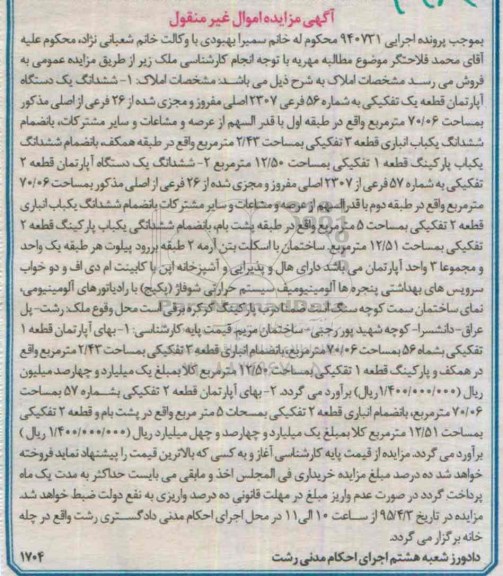 آگهی مزایده اموال غیر منقول
بموجب پرونده اجرایی ۹۴۰۷۳۱ محکوم له خانم سمیرا بهبودی با وکالت خانم شعبانی نژاد، محکوم علیه
آقای محمد فلاحتگر موضوع مطالبه مهریه با توجه انجام کارشناسی ملک زیر از طریق مزایده عمومی به
فروش می رسد مشخصات املاک به شرح ذیل می باشد: مشخصات املاک: ۱- ششدانگ یک دستگاه
آپارتمان قطعه یک تفکیکی به شماره ۵۶ فرعی ۲۳۰۷ اصلی مفروز و مجزی شده از ۲۶ فرعی از اصلی مذکور
بمساحت ۷۰/۰۶ مترمربع واقع در طبقه اول با قدر السهم از عرصه و مشاعات و سایر مشترکات، بانضمام
ششدانگ یکباب انباری قطعه ۳ تفکیکی بمساحت ۲/۴۳ مترمربع واقع در طبقه همکف، بانضمام ششدانگ
یکباب پارکینگ قطعه ۱ تفکیکی بمساحت ۱۲/۵۰ مترمربع ۲- ششدانگ یک دستگاه آپارتمان قطعه ۲
تفکیکی به شماره ۵۷ فرعی از ۲۳۰۷ اصلی مفروز و مجزی شده از ۲۶ فرعی از اصلی مذکور بمساحت ۷۰/۰۶
مترمربع واقع در طبقه دوم با قدرالسهم از عرصه و مشاعات و سایر مشترکات بانضمام ششدانگ یکباب انباری
قطعه ۲ تفکیکی بمساحت ۵ مترمربع واقع در طبقه پشت بام، بانضمام ششدانگی یکباب پارکینگ قطعه ۲
تفکیکی بمساحت ۱۲/۵۱ مترمربع. ساختمان با اسکلت بتن آرمه ۲ طبقه برروی پیلوت هر طبقه یک واحد
و مجموعا ۳ واحد آپارتمان می باشد دارای هال و پذیرایی و آشپزخانه اپن با کابینت ام دی اف و دو خواب
سرویس های بهداشتی پنجره ها آلومینیومیف سیستم حرارتی شوفاژ (پکیج) با رادیاتورهای آلومینیومی،
نمای ساختمان سمت کوچه سنگ است ضمنا درب پارکینگ کرکره برقی است محل وقوع ملک: رشت- پل
عراق- دانشسرا- کوچه شهید پور رجبی- ساختمان مریم. قیمت پایه کارشناسی: ۱- بهای آپارتمان قطعه ۱
تفکیکی بشماه ۵۶ بمساحت ۷۰/۰۶ مترمربع، بانضمام انباری قطعه ۳ تفکیکی بمساحت ۲/۴۳ مترمربع واقع
در همکف و پارکینگ قطعه ۱ تفکیکی بمساحت ۱۲/۵۰ مترمربع کلا بمبلغ یک میلیارد و چهارصد میلیون
ریال (۱/۴۰۰/۰۰۰/۰۰۰ ریال) برآورد می گردد. ۲- بهای آپارتمان قطعه ۲ تفکیکی بشماره ۵۷ بمساحت
۷۰/۰۶ مترمربع، بانضمام انباری قطعه ۲ تفکیکی بمسحات ۵ متر مربع واقع در پشت بام و قطعه ۲ تفکیکی
بمساحت ۱۲/۵۱ مترمربع کلا بمبلغ یک میلیارد و چهارصد و چهل میلیارد ریال (۱/۴۰۰/۰۰۰/۰۰۰ ریال)
برآورد می گردد. مزایده از قیمت پایه کارشناسی آغاز و به کسی که بالاترین قیمت را پیشنهاد نماید فروخته
خواهد شد ده درصد مبلغ مزایده خریداری فی المجلس اخذ و مابقی می بایست حداکثر به مدت یک ماه
پرداخت گردد در صورت عدم واریز مبلغ در مهلت قانونی ده درصد واریزی به نفع دولت ضبط خواهد شد.
مزایده در تاریخ ۹۵/۴/۳ از ساعت ۱۰ الی ۱۱ در محل اجرای احکام مدنی دادگستری رشت واقع در چله
خانه برگزار می گردد.
دادورز شعبه هشتم اجرای احکام مدنی رشت ۱۷۰۴